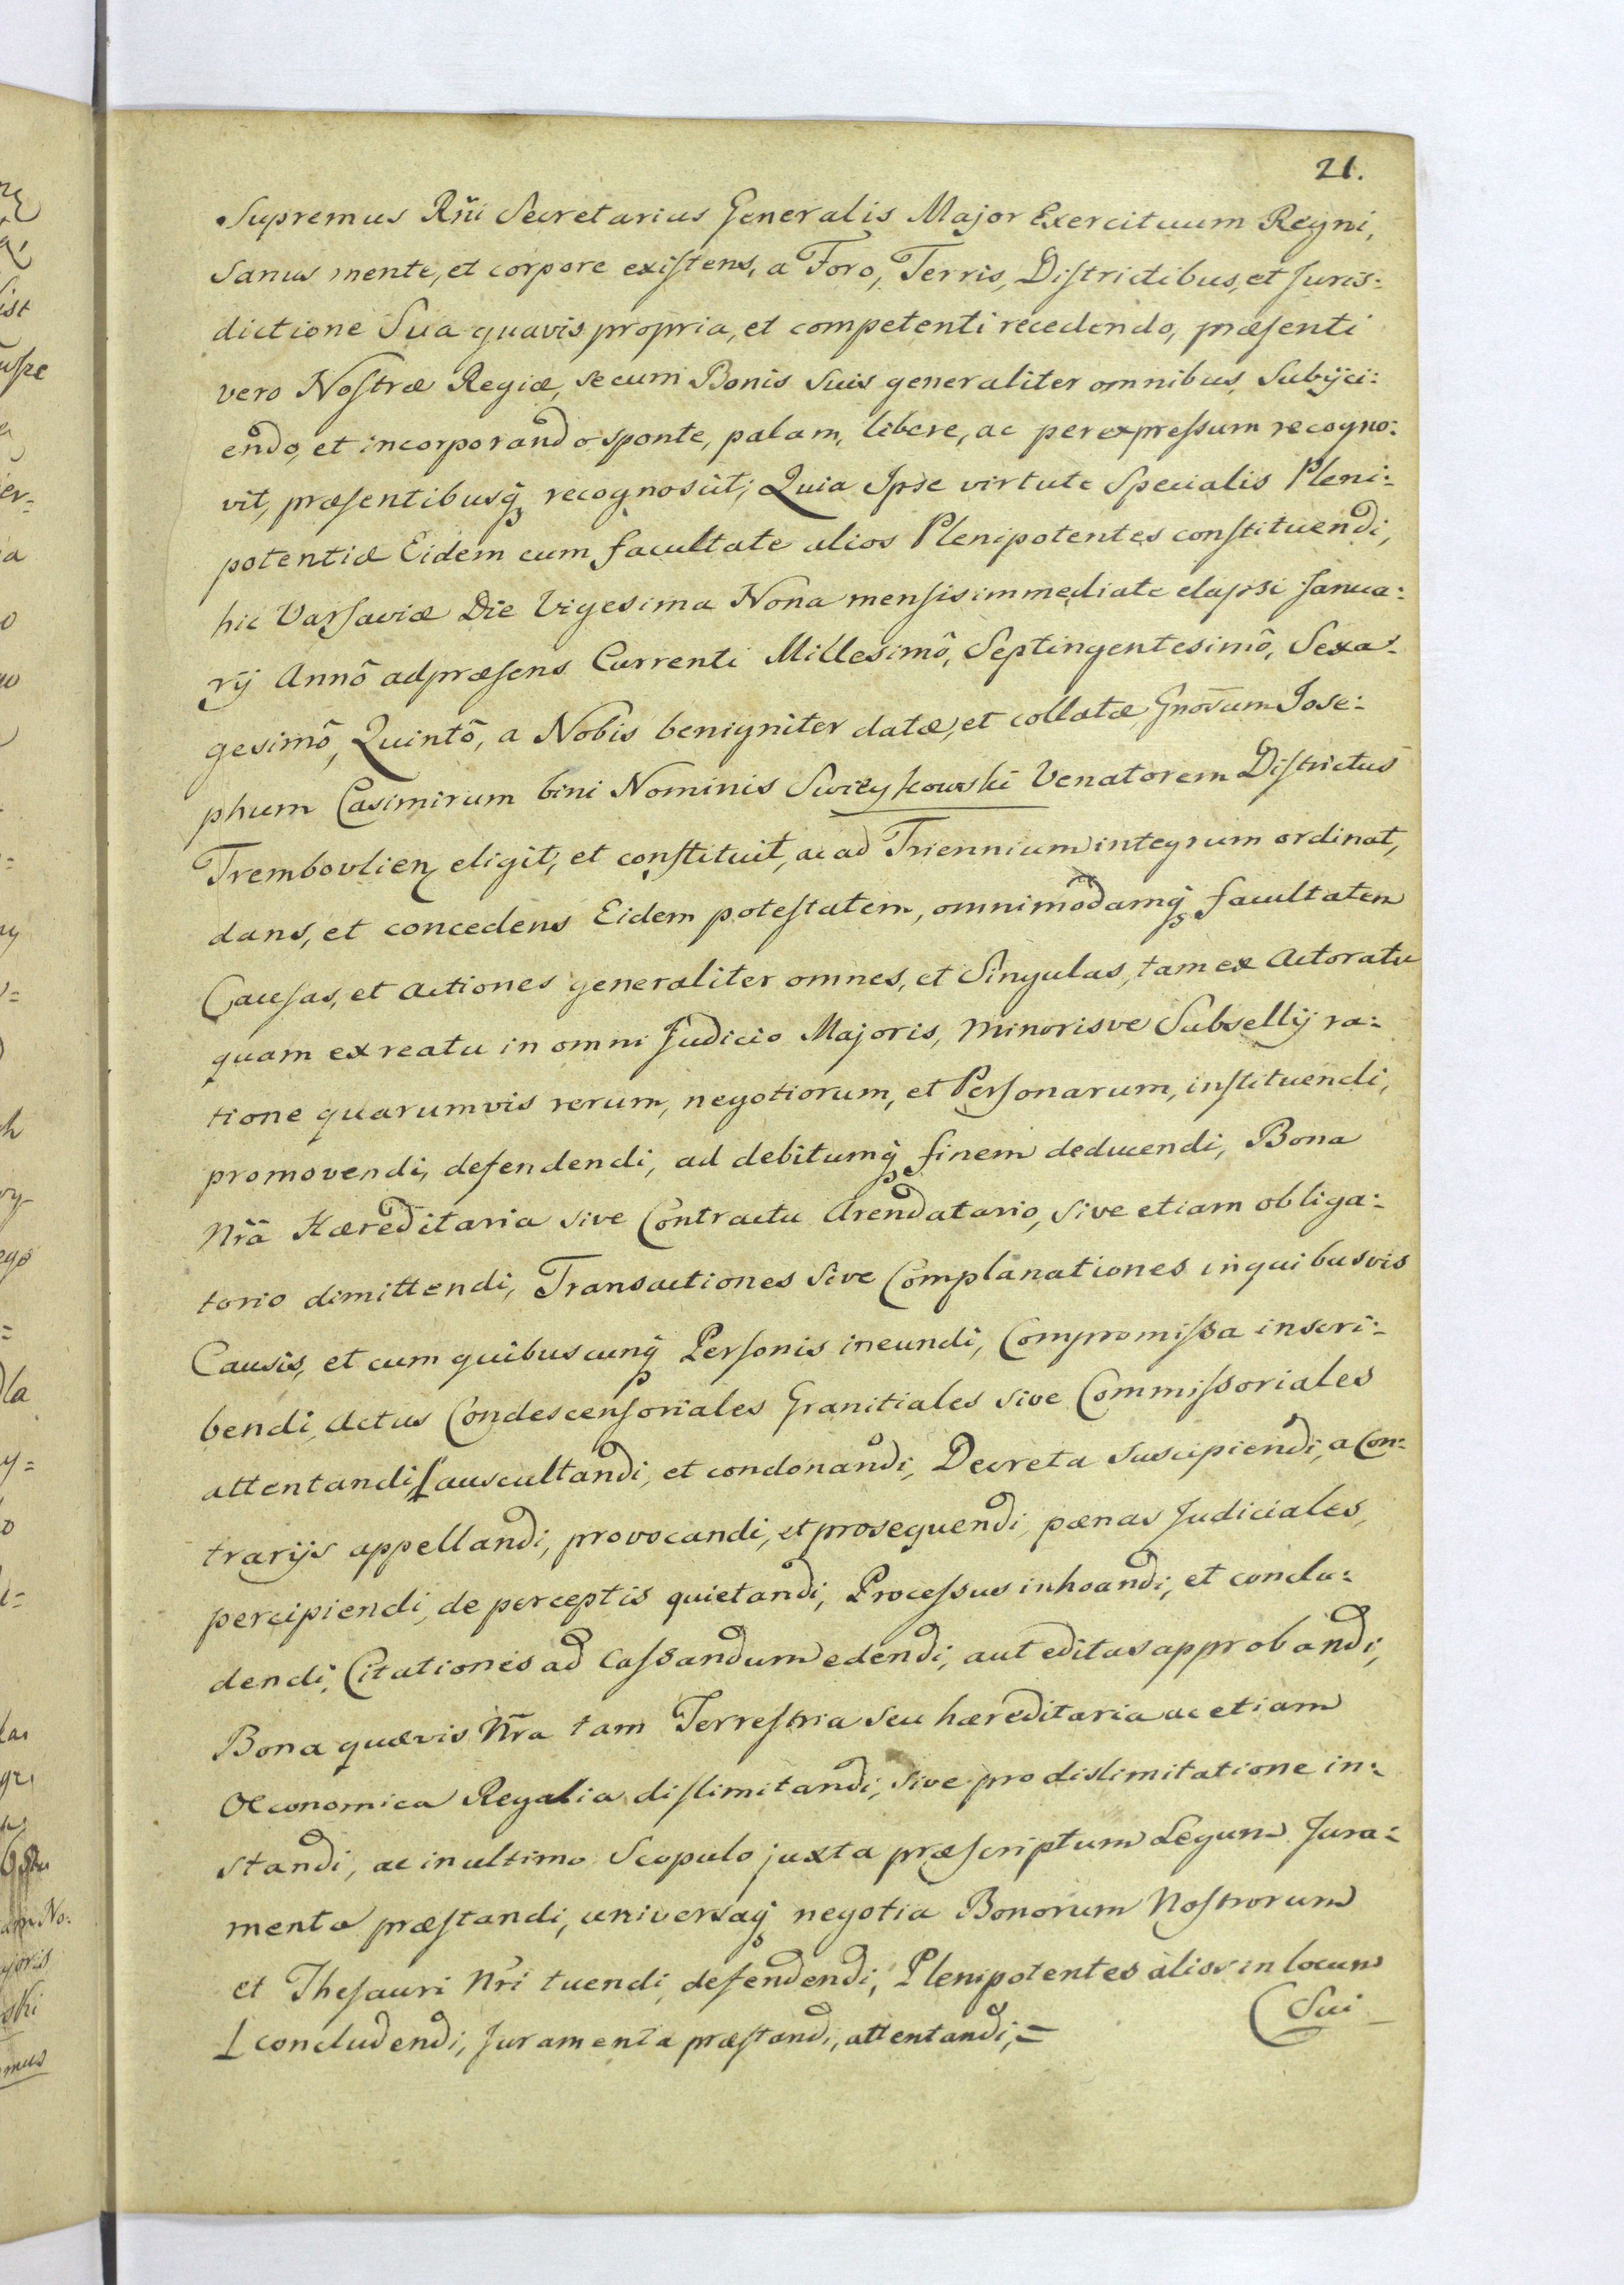 21.
Supremus Rñi Secretarius Generalis Major Exercituum Regni,
Sanus mente, et corpore existens, a Foro, Terris, Districtibus, et Juris:
dictione Sua quavis propria, et competenti recedendo, præsenti
vero Nostræ Regiæ, se cum Bonis Suis generaliter omnibus, Subijci:
endo, et incorporando sponte, palam, libere, ac per expressum recogno:
vit, præsentibusq̃ recognoscit; Quia Ipse virtute Specialis Pleni:
potentiæ Eidem cum facultate alios Plenipotentes constituendi,
hic Varsaviæ Die Vigesima Nona mensis immediate elapsi Janua:
rij Annô ad præsens Currenti Millesimô, Septingentesimô, Sexa:
gesimô, Quintô, a Nobis benigniter datæ, et collatæ, Gnõsum Jose:
phum Casimirum bini Nominis Swieykowski Venatorem Districtus
Trembovlien eligit, et constituit, ac ad Triennium integrum ordinat,
dans, et concedens Eidem potestatem, omnimodamq̃ facultatem
Causas, et actiones generaliter omnes, et Singulas, tam ex Actoratu
quam ex reatu in omni Judicio Majoris, minorisve Subsellij ra:
tione quarumvis rerum, negotiorum, et Personarum, instituendi,
promovendi, defendendi, ad debitumq̃ finem deducendi, Bona
Nrã Hæreditaria sive Contractu Arendatario, sive etiam obliga:
torio dimittendi, Transactiones sive Complanationes in quibusvis
Causis, et cum quibuscunq̃ Personis ineundi, Compromissa inscri:
bendi, Actus Condescensoriales Granitiales sive Commissoriales
attentandi, ⌊auscultandi, et condonandi, Decreta suscipiendi, a Con:
trarijs appellandi, provocandi, et prosequendi, pænas Judiciales,
percipiendi, de perceptis quietandi, Processus inhoandi, et conclu:
dendi, Citationes ad Cassandum edendi, aut editas approbandi,
Bona quævis Nr̃a tam Terrestria seu hæreditaria ac etiam
Oeconomica Regalia dislimitandi, sive pro dislimitatione in:
standi, ac in ultimo Scopulo juxta præscriptum Legum Jura:
menta præstandi, universaq̃ negotia Bonorum Nostrorum
et Thesauri Nr̃i tuendi, defendendi, Plenipotentes alios in locum
Sui
⌊ concludendi, Juramenta præstandi, attentandi, =